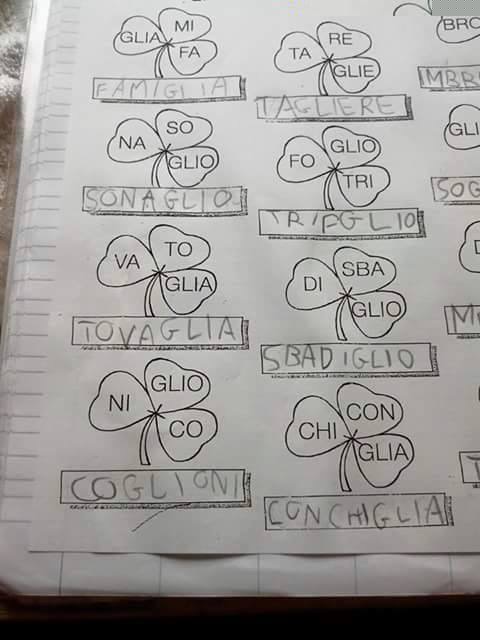 GLIA MI FA
FAMIGLIA
TA RE GLIE
TAGLIERE
NA SO GLIO
SONAGLIO
FO GLIO TRI
TRIFGLIO
VA TO GLIA
TOVAGLIA
DI SBA GLIO
SBADIGLIO
NI GLIO CO
COGLIONI
CHI CON GLIA
CONCHIGLIA
BRO
MBR
GLI
SOG